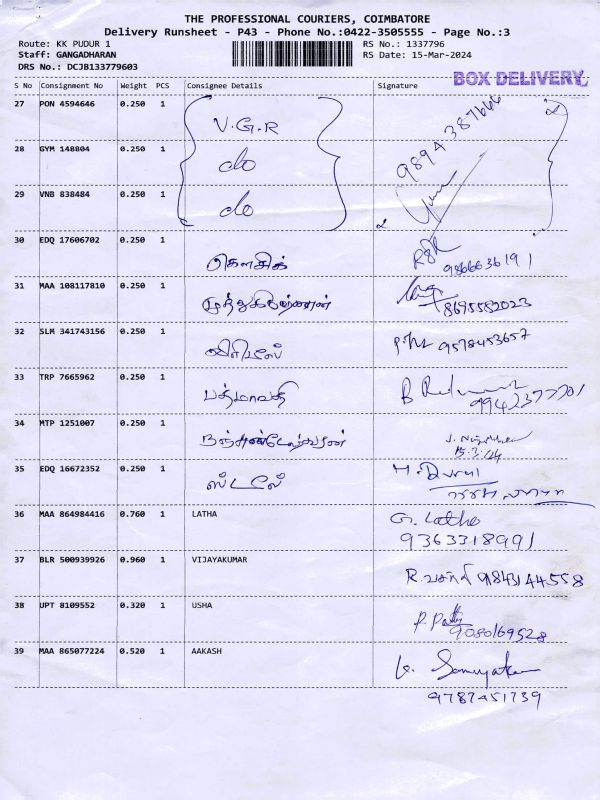 THE PROFESSIONAL COURIERS, COIMBATORE
Delivery Runsheet - P43 - Phone No.:0422-3505555 - Page No.:3
Route: KK PUDUR 1 RS No.: 1337796
Staff: GANGADHARAN RS Date: 15-Mar-2024
DRS No.: DCJB133779603
BOX DELIVERY
S No Consignment No Weight PCS Consignee Details Signature
27 PON 4594646 0.250 1 V.G.R 9894387666
28 GYM 148804 0.250 1 do
29 VNB 838484 0.250 1 do
30 EDQ 17606702 0.250 1 கௌசிக்
9866636191
31 MAA 108117810 0.250 1
8695582023
32 SLM 341743156 0.250 1 9578453657
33 TRP 7665962 0.250 1 பத்மாவதி B
9942377701
34 MTP 1251007 0.250 1 J.
15.3.24
35 EDQ 16672352 0.250 1 ஸ்டாலே M.
36 MAA 864984416 0.760 1 LATHA G. Latha
9363318991
37 BLR 500939926 0.960 1 VIJAYAKUMAR R. வசந்தி 9843144558
38 UPT 8109552 0.320 1 USHA P.
9080169528
39 MAA 865077224 0.520 1 AAKASH
9787451739